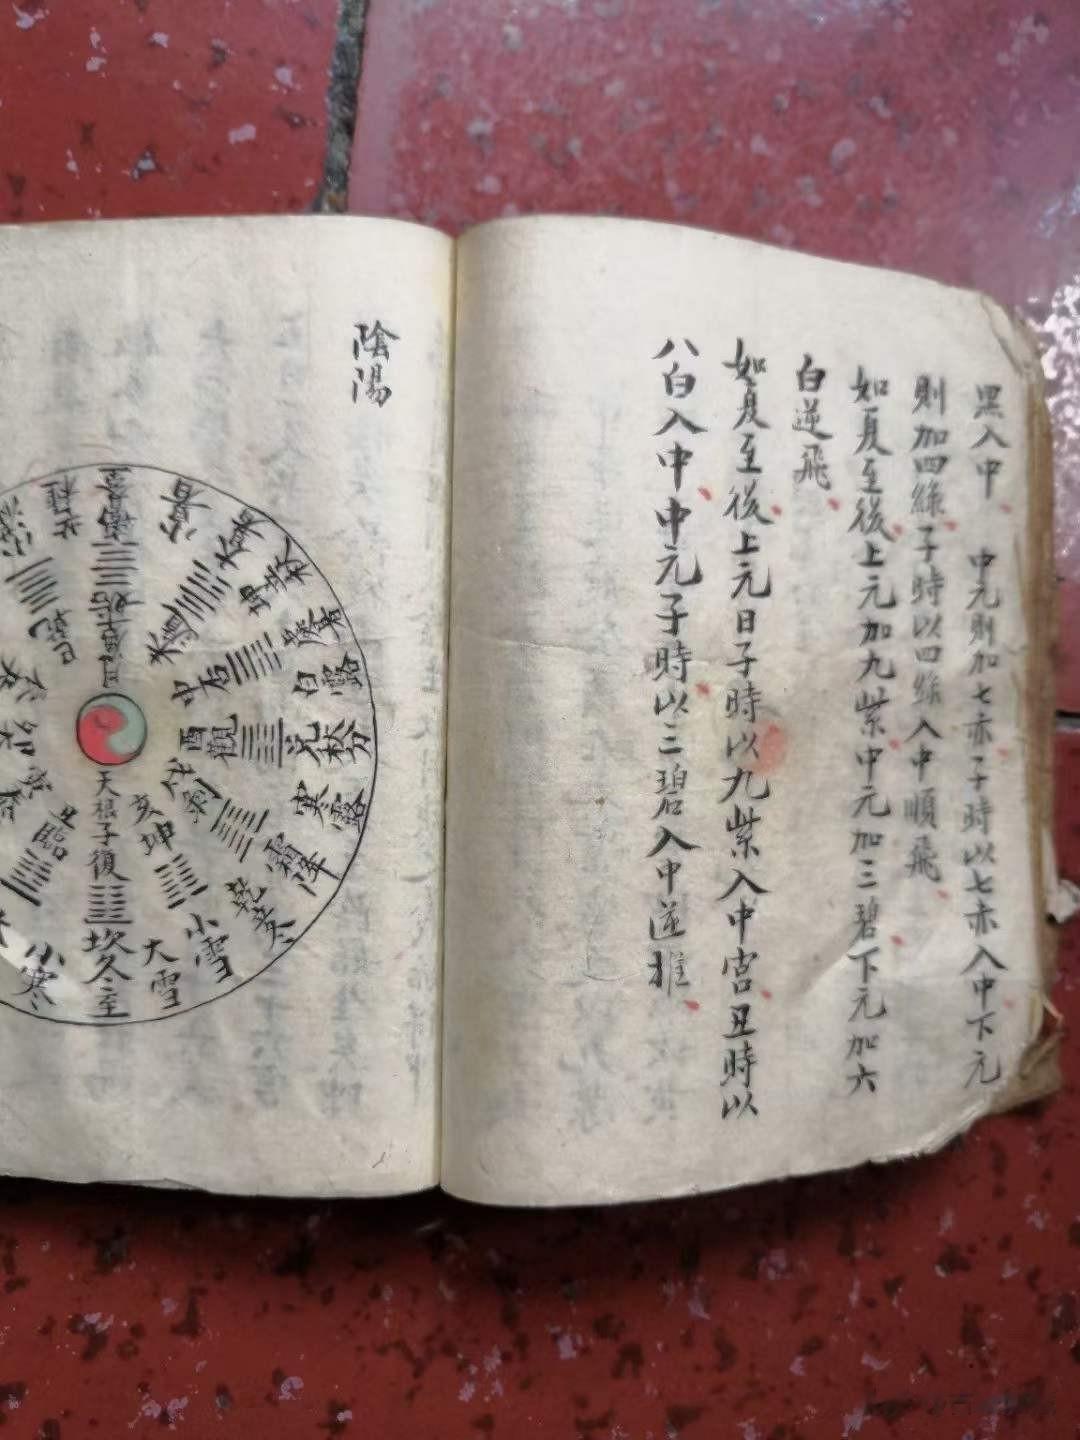 黑入中　中元則加七赤子時以七赤入中下元
則加四綠子時以四綠入中順飛
如夏至後上元加九紫中元加三碧下元加六
白逆飛
如夏至後上元日子時以九紫入中宮丑時以
八白入中中元子時以三碧入中逆推
陰陽
小暑
大暑
坤立秋
處暑
白露
兌秋分
寒露
霜降
乾立冬
小雪
大雪
坎冬至
小寒
酉觀
戌剝
亥坤
天根子復
丑臨
巳乾
申否
未遯